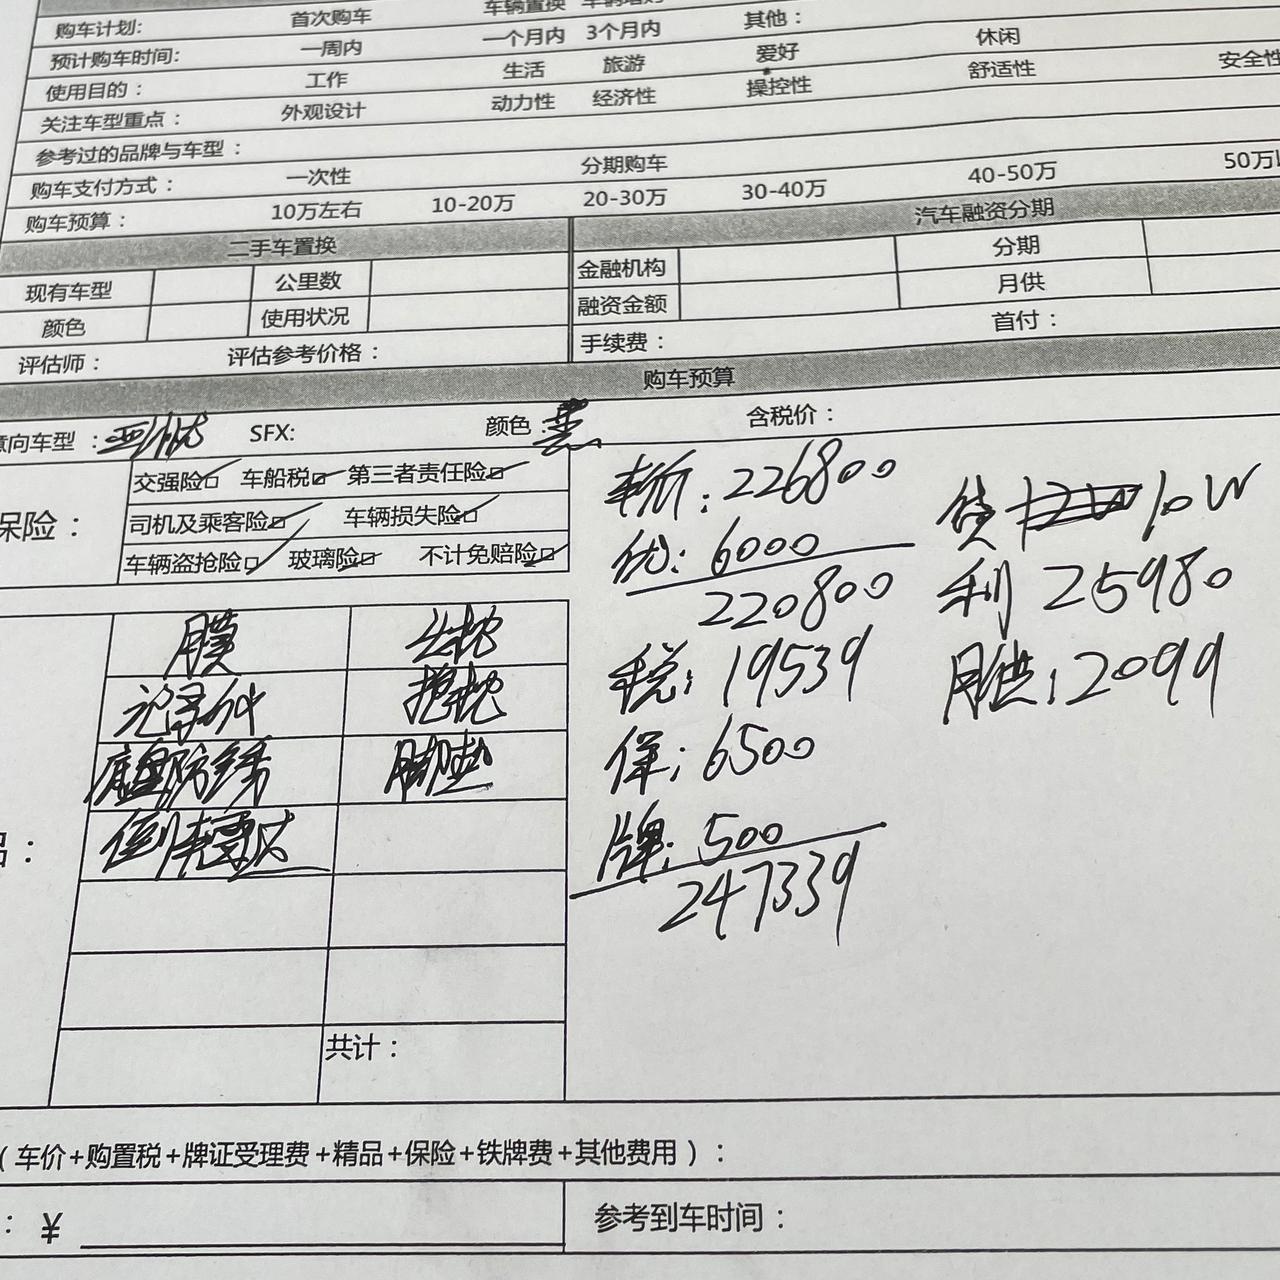 购车计划: 首次购车 车辆置换 车辆增购
预计购车时间: 一周内 一个月内 3个月内 其他:
使用目的: 工作 生活 旅游 爱好 休闲
关注车型重点: 外观设计 动力性 经济性 操控性 舒适性 安全性
参考过的品牌与车型:
购车支付方式: 一次性 分期购车
购车预算: 10万左右 10-20万 20-30万 30-40万 40-50万 50万
二手车置换 汽车融资分期
现有车型 公里数 金融机构 分期
颜色 使用状况 融资金额 月供
评估师: 评估参考价格: 手续费: 首付:
购车预算
意向车型: SFX: 颜色: 黑 含税价:
保险: 交强险 车船税 第三者责任险
司机及乘客险 车辆损失险
车辆盗抢险 玻璃险 不计免赔险
车价: 226800
优: 6000
220800
税: 19539
保: 6500
牌: 500
247339
贷 10W
利 25980
月供: 2099
品:
膜 头枕
记录仪 抱枕
底盘防锈 脚垫
倒车雷达
共计:
(车价+购置税+牌证受理费+精品+保险+铁牌费+其他费用):
: ¥ 参考到车时间: